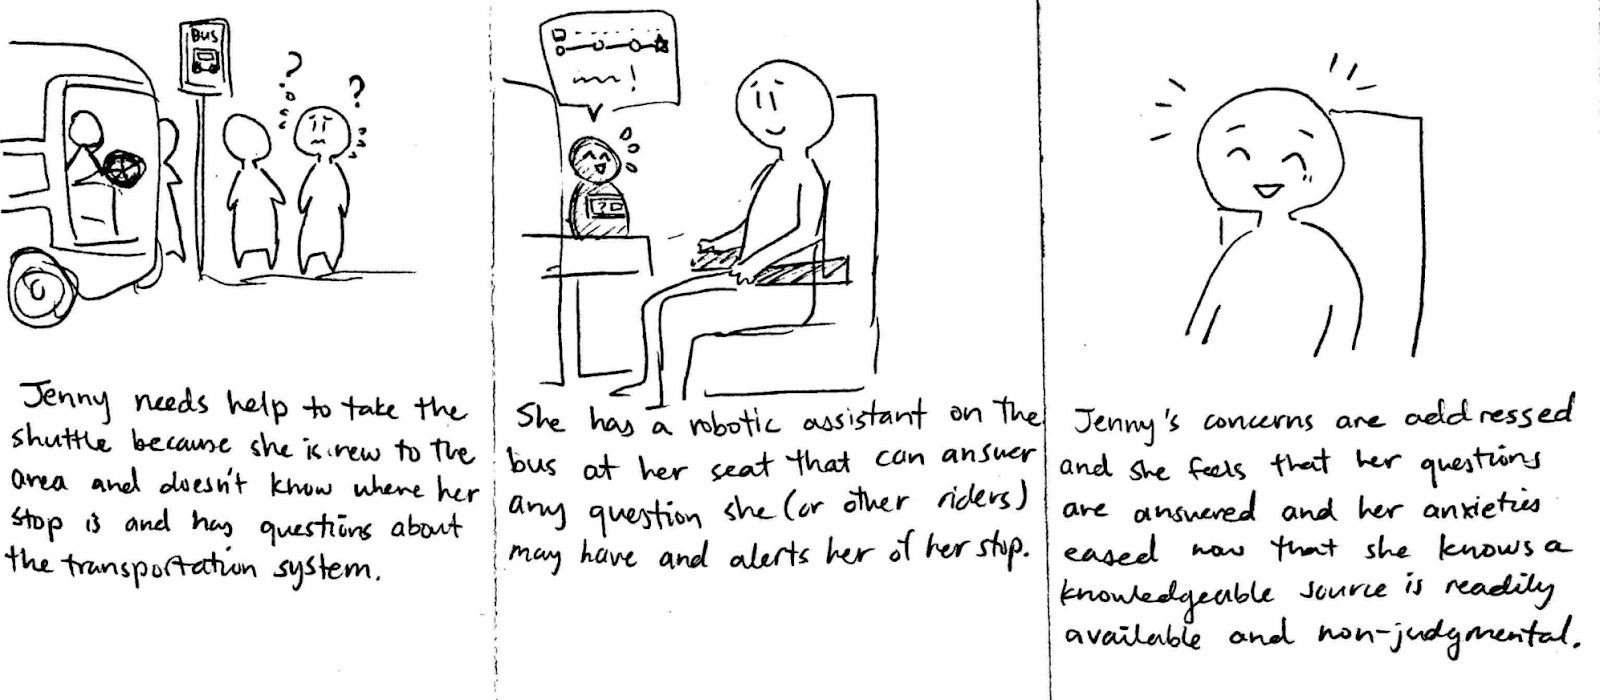 BUS
?
?
Jenny needs help to take the
shuttle because she is new to the
area and doesn't know where her
stop is and has questions about
the transportation system.
!
?
She has a robotic assistant on the
bus at her seat that can answer
any question she (or other riders)
may have and alerts her of her stop.
Jenny's concerns are addressed
and she feels that her questions
are answered and her anxieties
eased now that she knows a
knowledgeable source is readily
available and non-judgmental.